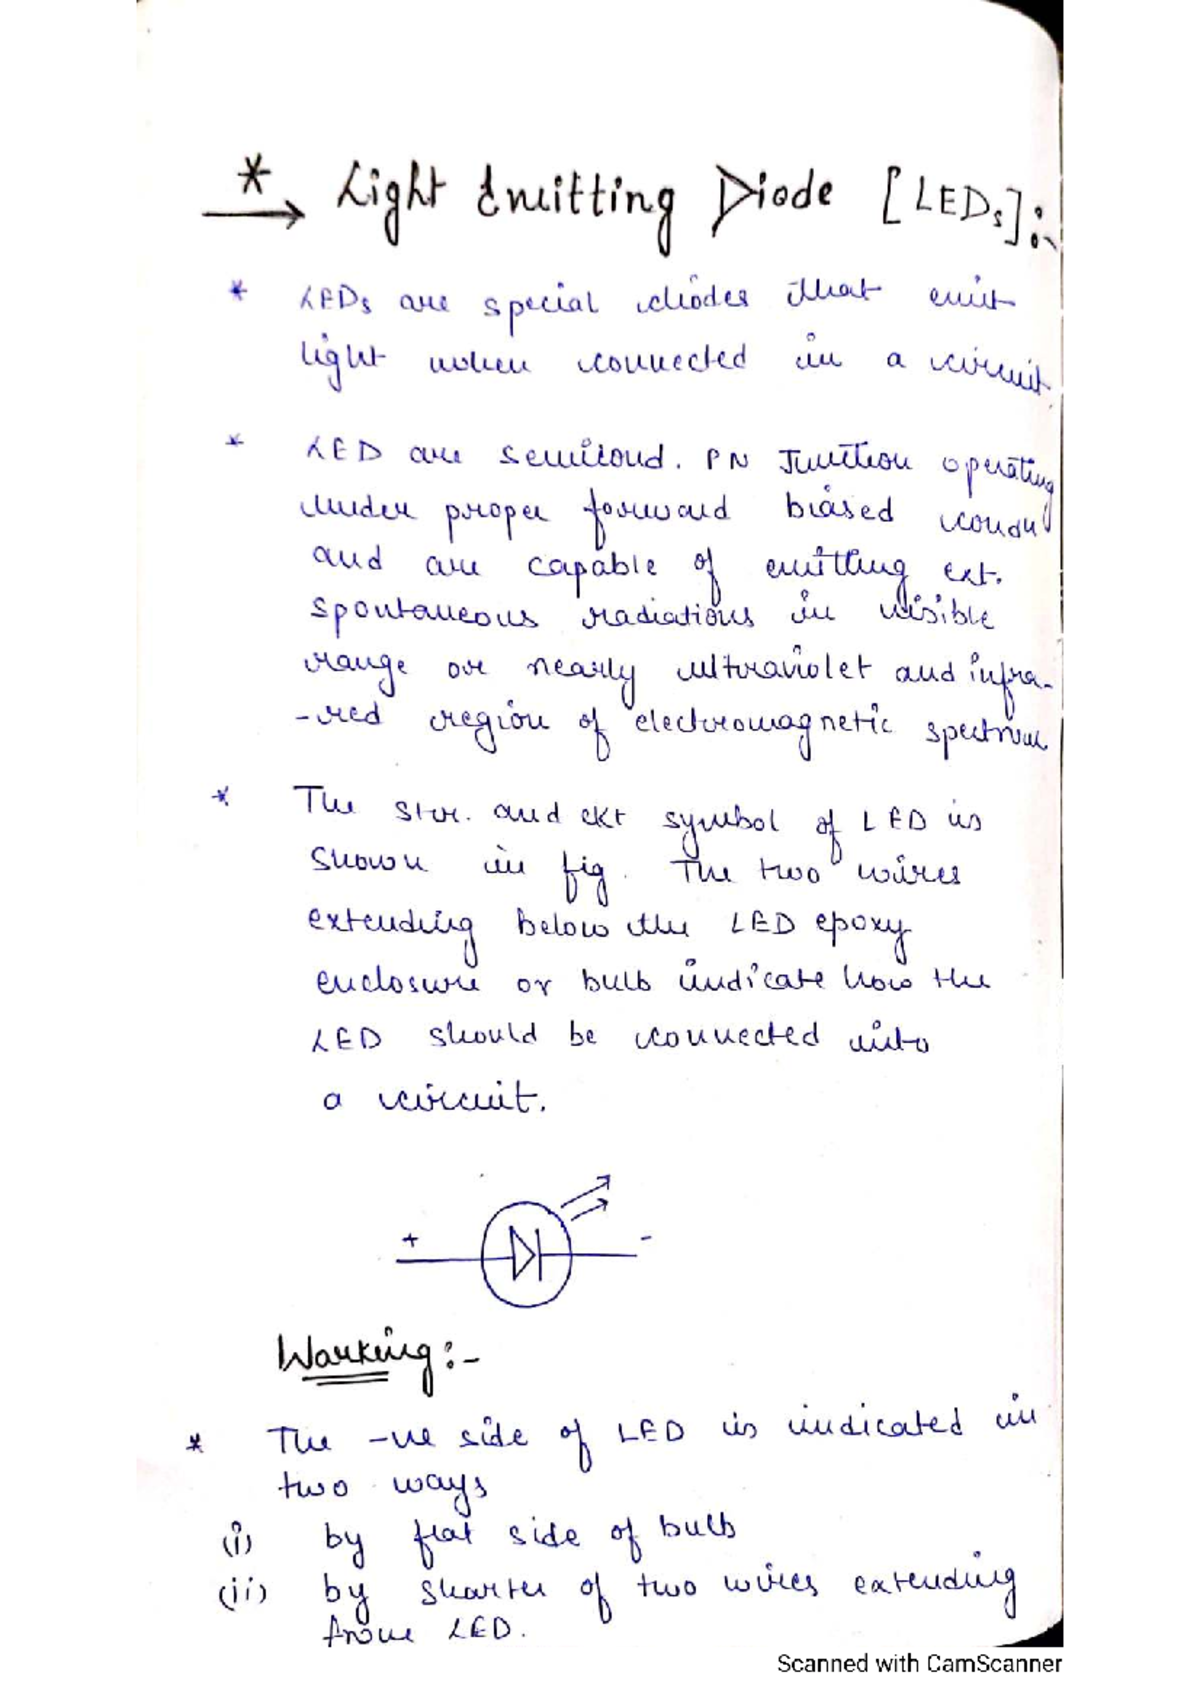 * Light Emitting Diode [LEDs]:-
* LEDs are special diodes that emit
light when connected in a circuit.
* LED are semicond. PN Junction operating
under proper forward biased condn
and are capable of emitting ext.
spontaneous radiations in visible
range or nearly ultraviolet and infra-
-red region of electromagnetic spectrum
* The str. and ckt symbol of LED is
shown in fig. The two wires
extending below the LED epoxy
enclosure or bulb indicate how the
LED should be connected into
a circuit.
+ -
Working:-
* The -ve side of LED is indicated in
two ways
(i) by flat side of bulb
(ii) by shorter of two wires extending
from LED.
Scanned with CamScanner